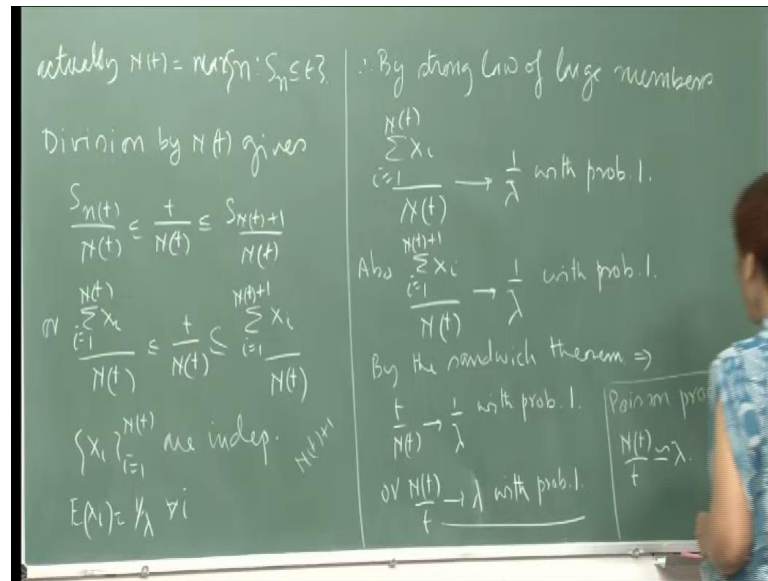 actually N(t) = max{n : S_n ≤ t}
Division by N(t) gives
S_n(t) / N(t) ≤ t / N(t) ≤ S_N(t)+1 / N(t)
or ∑_{i=1}^{N(t)} X_i / N(t) ≤ t / N(t) ≤ ∑_{i=1}^{N(t)+1} X_i / N(t)
{X_i}_{i=1}^{N(t)} are indep. N(t)+1
E(X_i) = 1/λ ∀i
∴ By strong law of large numbers
∑_{i=1}^{N(t)} X_i / N(t) → 1/λ with prob. 1.
Also ∑_{i=1}^{N(t)+1} X_i / N(t) → 1/λ with prob. 1.
By the sandwich theorem ⇒
t / N(t) → 1/λ with prob. 1.
or N(t) / t → λ with prob. 1.
Poisson pro
N(t) / t ≃ λ.